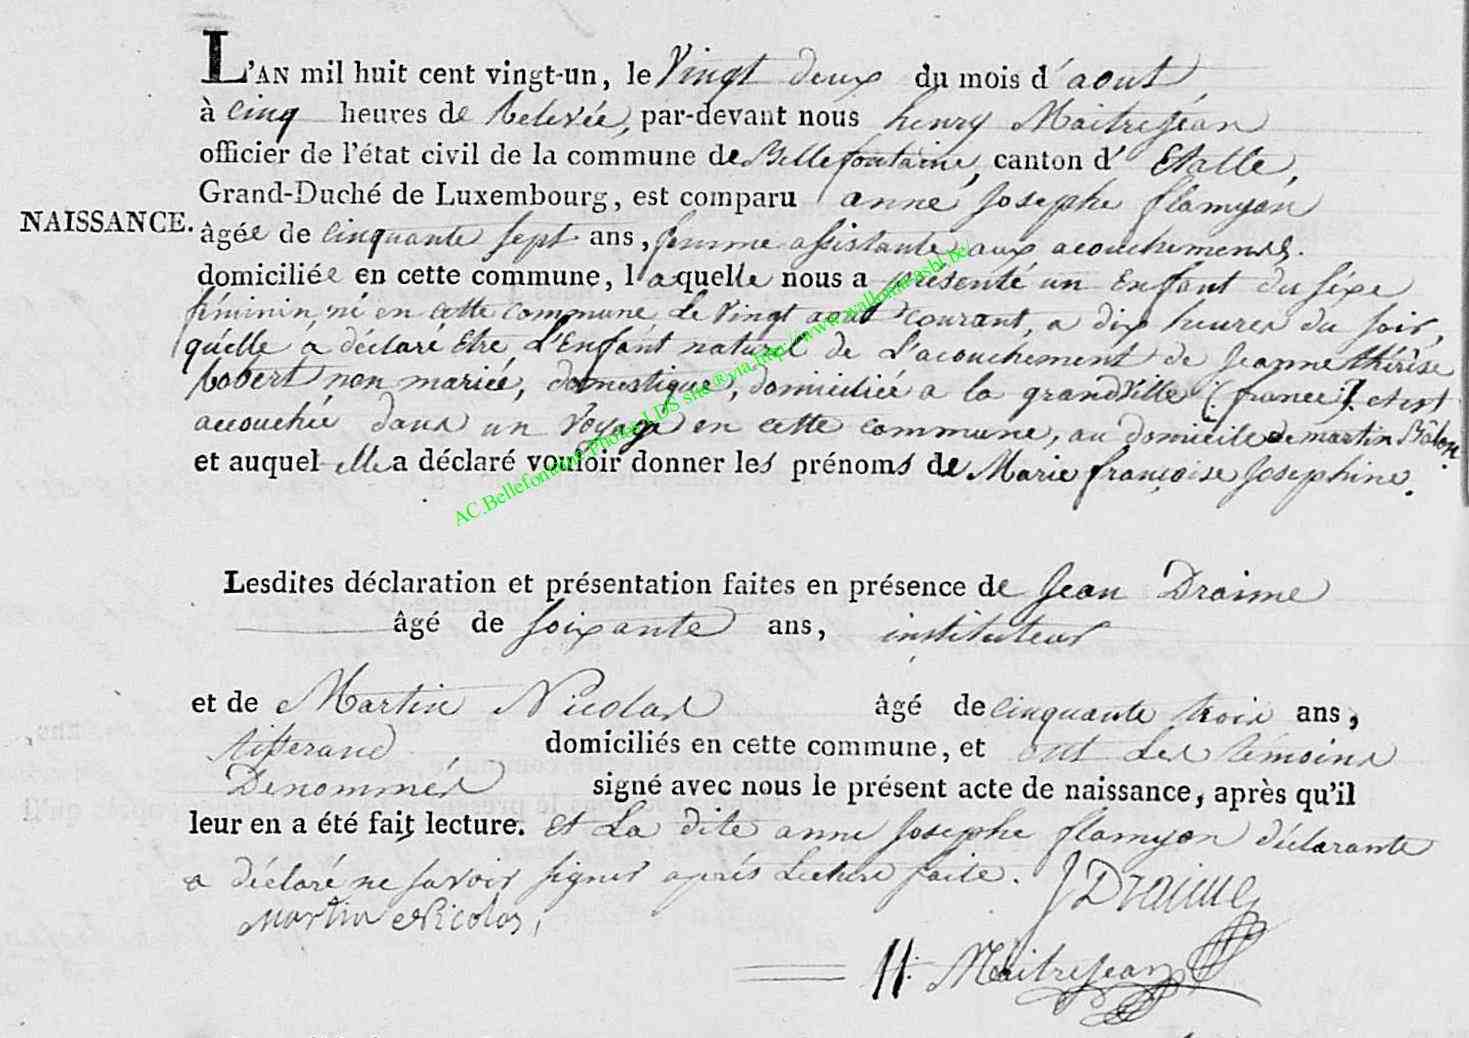 L'AN mil huit cent vingt-un, le Vingt deux du mois d'aout,
à cinq heures de Relevée, par-devant nous henry Maitrejean
officier de l'état civil de la commune de Bellefontaine, canton d' Etalle,
Grand-Duché de Luxembourg, est comparu anne Josephe flamyon
NAISSANCE. âgée de cinquante sept ans, femme assistante aux acouchements.
domiciliée en cette commune, laquelle nous a présenté un Enfant du séxe
féminin, né en cette commune Le Vingt aout courant, a dix heures du soir,
qu'elle a déclaré Etre L'Enfant naturel de L'acouchement de Jeanne thérèse
Robert non mariée, domestique, domiciliée a la grandville (france). et est
accouchée dans un Voyage en cette commune, au domicile de martin
et auquel elle a déclaré vouloir donner les prénoms de Marie françoise Josephine.
Lesdites déclaration et présentation faites en présence de Jean Draime
âgé de soixante ans, instituteur
et de Martin Nicolas âgé de cinquante trois ans,
tisserand domiciliés en cette commune, et ont Les témoins
Dénommés signé avec nous le présent acte de naissance, après qu'il
leur en a été fait lecture. et La dite anne Josephe flamyon déclarante
a déclaré ne savoir signer après Lecture faite. J Draime
Martin Nicolas,
H. Maitrejean
AC.Bellefontaine Photos LDS sne @yta.http://www.wallonia-asbl.be